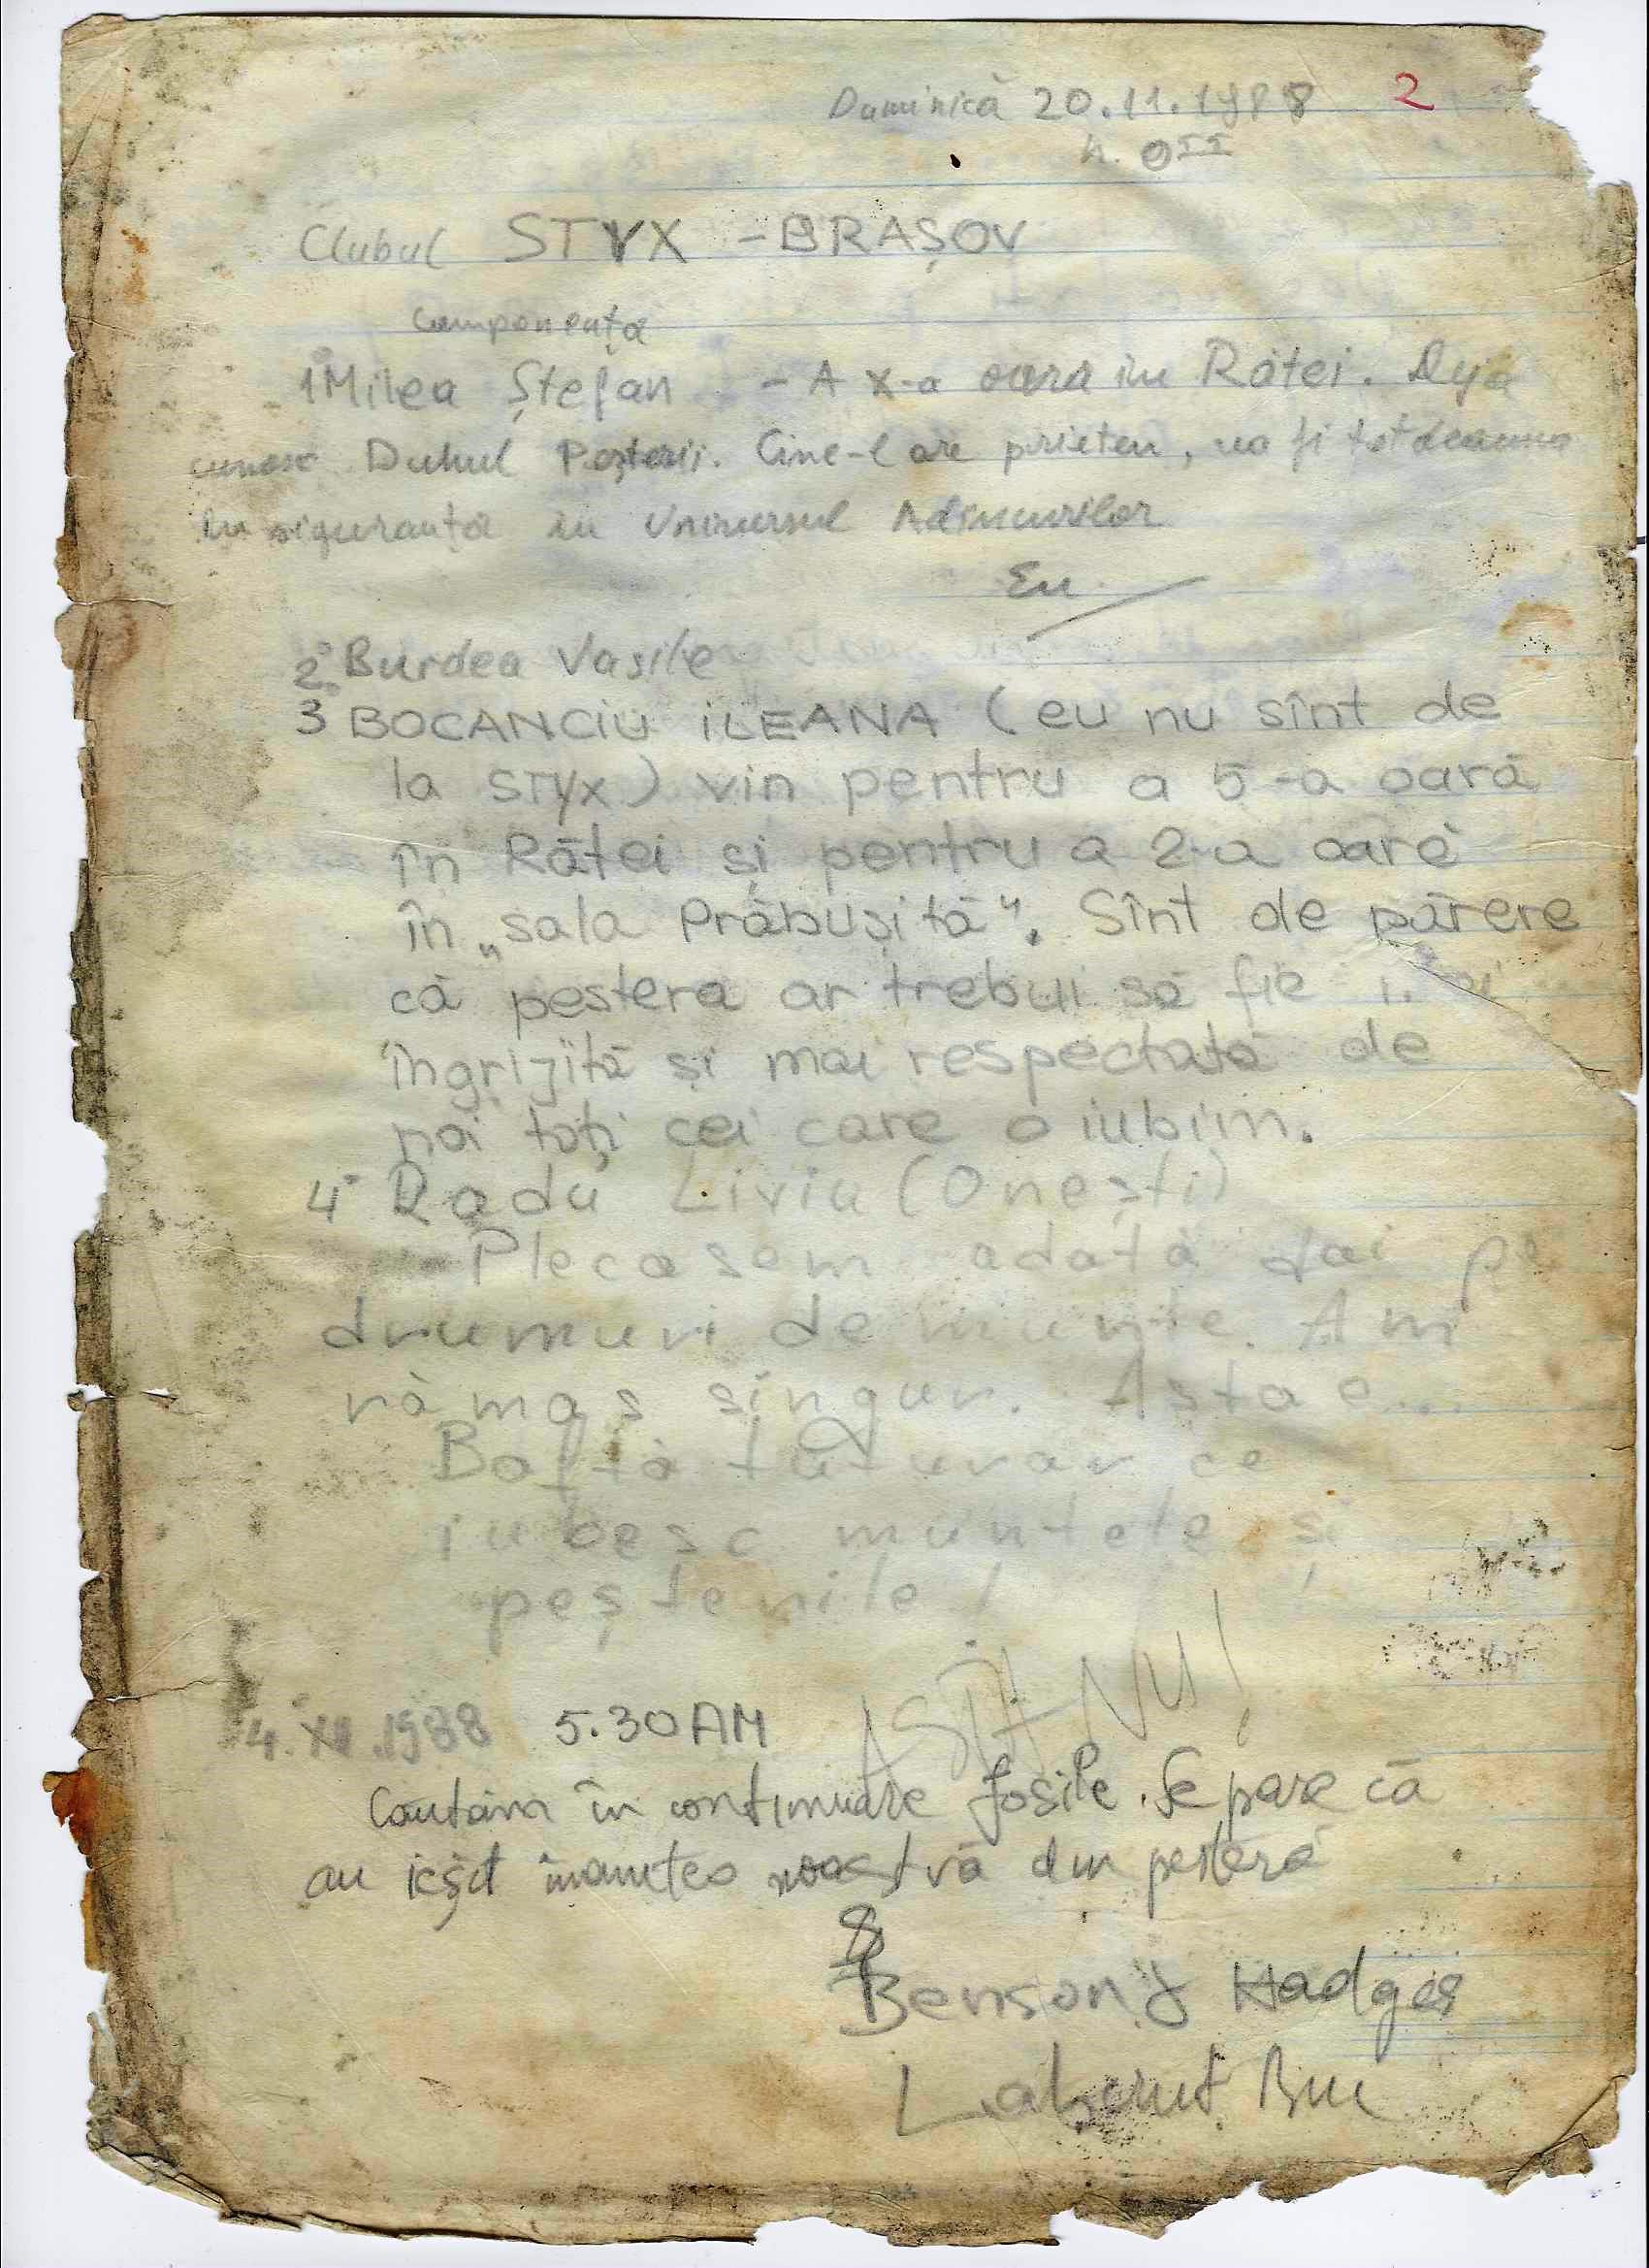 Duminică 20.11.1988 2
h. 0
Clubul STYX - BRAȘOV
Componența
1 Milea Ștefan - A X-a oara în Rătei. Deja
cunosc Duhul Peșterii. Cine-l are prieten, va fi totdeauna
în siguranță în Universul Adîncurilor
Eu
2 Burdea Vasile
3 BOCANCIU ILEANA (eu nu sînt de
la STYX) vin pentru a 5-a oară
în Rătei și pentru a 2-a oară
în „sala Prăbușită". Sînt de părere
că pestera ar trebui să fie
îngrijită și mai respectată de
noi toți cei care o iubim.
4 Radu Liviu (Onești)
Plecasem odată doi pe
drumuri de munte. Am
rămas singur. Asta e...
Baftă tuturor ce
iubesc muntele și
peșterile!
ASTA NU!
4. XII.1988 5.30 AM
Căutăm în continuare fosile. Se pare că
au ieșit înaintea noastră din pesteră
Benson & Hadges
Labirint Buc